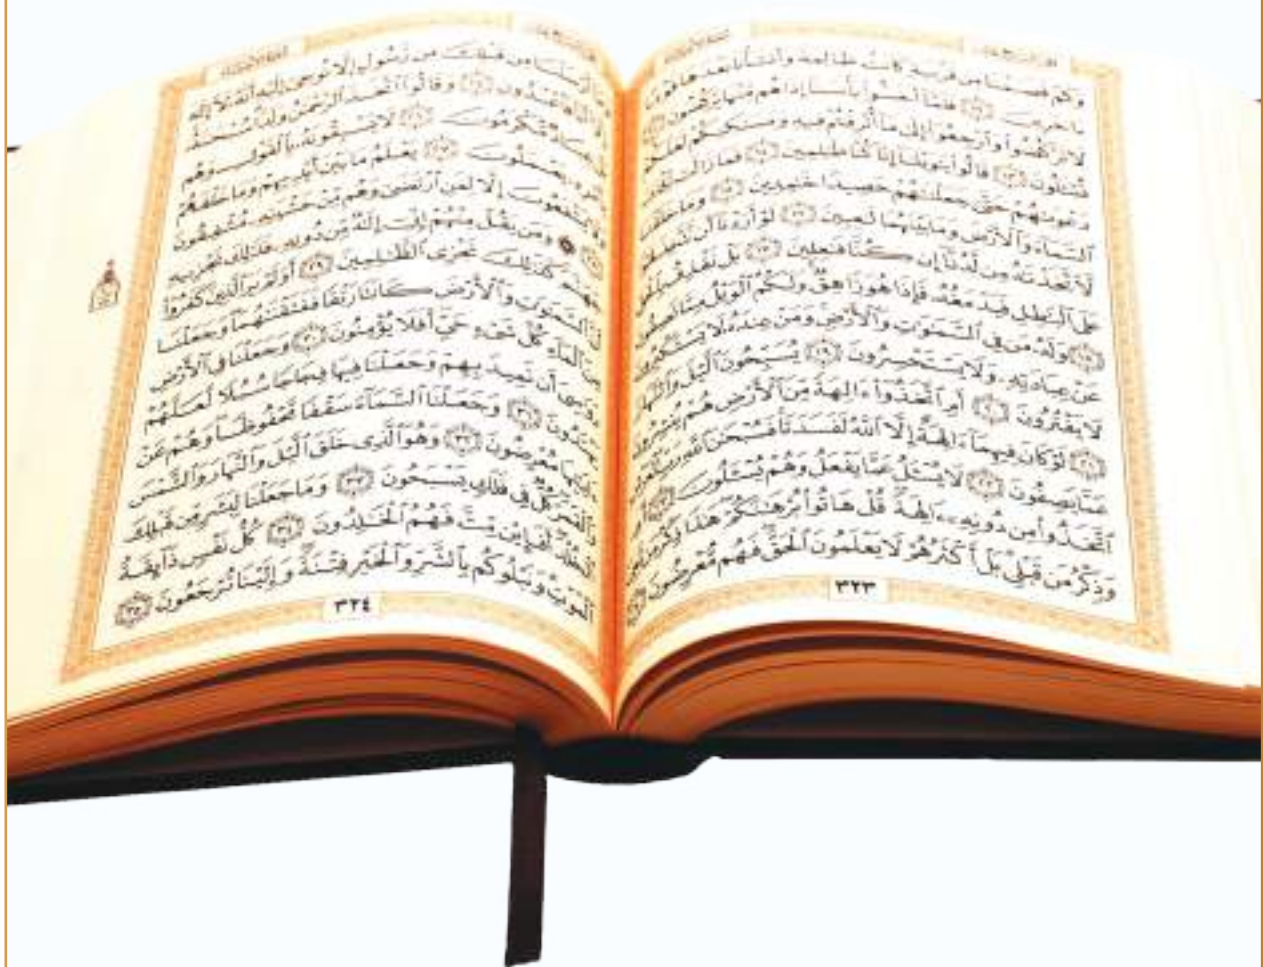 وَكَمْ قَصَمْنَا مِن قَرْيَةٍ كَانَتْ ظَالِمَةً وَأَنشَأْنَا بَعْدَهَا قَوْمًا
ءَاخَرِينَ ١١ فَلَمَّآ أَحَسُّوا۟ بَأْسَنَآ إِذَا هُم مِّنْهَا يَرْكُضُونَ ١٢
لَا تَرْكُضُوا۟ وَٱرْجِعُوٓا۟ إِلَىٰ مَآ أُتْرِفْتُمْ فِيهِ وَمَسَٰكِنِكُمْ لَعَلَّكُمْ
تُسْـَٔلُونَ ١٣ قَالُوا۟ يَٰوَيْلَنَآ إِنَّا كُنَّا ظَٰلِمِينَ ١٤ فَمَا زَالَت تِّلْكَ
دَعْوَىٰهُمْ حَتَّىٰ جَعَلْنَٰهُمْ حَصِيدًا خَٰمِدِينَ ١٥ وَمَا خَلَقْنَا
ٱلسَّمَآءَ وَٱلْأَرْضَ وَمَا بَيْنَهُمَا لَٰعِبِينَ ١٦ لَوْ أَرَدْنَآ أَن نَّتَّخِذَ لَهْوًا
لَّٱتَّخَذْنَٰهُ مِن لَّدُنَّآ إِن كُنَّا فَٰعِلِينَ ١٧ بَلْ نَقْذِفُ بِٱلْحَقِّ
عَلَى ٱلْبَٰطِلِ فَيَدْمَغُهُۥ فَإِذَا هُوَ زَاهِقٌ وَلَكُمُ ٱلْوَيْلُ مِمَّا تَصِفُونَ
١٨ وَلَهُۥ مَن فِى ٱلسَّمَٰوَٰتِ وَٱلْأَرْضِ وَمَنْ عِندَهُۥ لَا يَسْتَكْبِرُونَ
عَنْ عِبَادَتِهِۦ وَلَا يَسْتَحْسِرُونَ ١٩ يُسَبِّحُونَ ٱلَّيْلَ وَٱلنَّهَارَ
لَا يَفْتُرُونَ ٢٠ أَمِ ٱتَّخَذُوٓا۟ ءَالِهَةً مِّنَ ٱلْأَرْضِ هُمْ يُنشِرُونَ
٢١ لَوْ كَانَ فِيهِمَآ ءَالِهَةٌ إِلَّا ٱللَّهُ لَفَسَدَتَا فَسُبْحَٰنَ ٱللَّهِ رَبِّ ٱلْعَرْشِ
عَمَّا يَصِفُونَ ٢٢ لَا يُسْـَٔلُ عَمَّا يَفْعَلُ وَهُمْ يُسْـَٔلُونَ ٢٣ أَمِ
ٱتَّخَذُوا۟ مِن دُونِهِۦٓ ءَالِهَةً قُلْ هَاتُوا۟ بُرْهَٰنَكُمْ هَٰذَا ذِكْرُ مَن مَّعِىَ
وَذِكْرُ مَن قَبْلِى بَلْ أَكْثَرُهُمْ لَا يَعْلَمُونَ ٱلْحَقَّ فَهُم مُّعْرِضُونَ ٢٤
٣٢٣
وَمَآ أَرْسَلْنَا مِن قَبْلِكَ مِن رَّسُولٍ إِلَّا نُوحِىٓ إِلَيْهِ أَنَّهُۥ لَآ إِلَٰهَ
إِلَّآ أَنَا۠ فَٱعْبُدُونِ ٢٥ وَقَالُوا۟ ٱتَّخَذَ ٱلرَّحْمَٰنُ وَلَدًا سُبْحَٰنَهُۥ
بَلْ عِبَادٌ مُّكْرَمُونَ ٢٦ لَا يَسْبِقُونَهُۥ بِٱلْقَوْلِ وَهُم
بِأَمْرِهِۦ يَعْمَلُونَ ٢٧ يَعْلَمُ مَا بَيْنَ أَيْدِيهِمْ وَمَا خَلْفَهُمْ
وَلَا يَشْفَعُونَ إِلَّا لِمَنِ ٱرْتَضَىٰ وَهُم مِّنْ خَشْيَتِهِۦ مُشْفِقُونَ
٢٨ ۞ وَمَن يَقُلْ مِنْهُمْ إِنِّىٓ إِلَٰهٌ مِّن دُونِهِۦ فَذَٰلِكَ نَجْزِيهِ
جَهَنَّمَ كَذَٰلِكَ نَجْزِى ٱلظَّٰلِمِينَ ٢٩ أَوَلَمْ يَرَ ٱلَّذِينَ كَفَرُوٓا۟
أَنَّ ٱلسَّمَٰوَٰتِ وَٱلْأَرْضَ كَانَتَا رَتْقًا فَفَتَقْنَٰهُمَا وَجَعَلْنَا
مِنَ ٱلْمَآءِ كُلَّ شَىْءٍ حَىٍّ أَفَلَا يُؤْمِنُونَ ٣٠ وَجَعَلْنَا فِى ٱلْأَرْضِ
رَوَٰسِىَ أَن تَمِيدَ بِهِمْ وَجَعَلْنَا فِيهَا فِجَاجًا سُبُلًا لَّعَلَّهُمْ
يَهْتَدُونَ ٣١ وَجَعَلْنَا ٱلسَّمَآءَ سَقْفًا مَّحْفُوظًا وَهُمْ عَنْ
ءَايَٰتِهَا مُعْرِضُونَ ٣٢ وَهُوَ ٱلَّذِى خَلَقَ ٱلَّيْلَ وَٱلنَّهَارَ وَٱلشَّمْسَ
وَٱلْقَمَرَ كُلٌّ فِى فَلَكٍ يَسْبَحُونَ ٣٣ وَمَا جَعَلْنَا لِبَشَرٍ مِّن قَبْلِكَ
ٱلْخُلْدَ أَفَإِي۟ن مِّتَّ فَهُمُ ٱلْخَٰلِدُونَ ٣٤ كُلُّ نَفْسٍ ذَآئِقَةُ
ٱلْمَوْتِ وَنَبْلُوكُم بِٱلشَّرِّ وَٱلْخَيْرِ فِتْنَةً وَإِلَيْنَا تُرْجَعُونَ ٣٥
٣٢٤